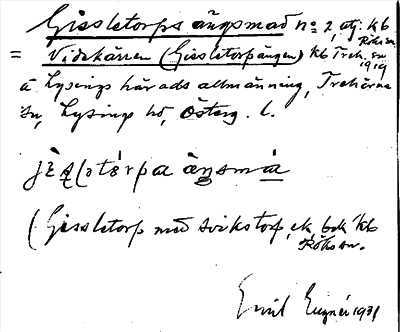 Gissletorps ängsmad no 2, utj. kb Röks sn.
= Vidkärren (Gissletorpängen) kb Treh. sn 1919
å Lysings härads allmänning, Trehörna
sn, Lysings hd, Österg. l.
(Gissletorp med Svikstorp, ek. bok kb
Röks sn.
Emil Eugnér 1931